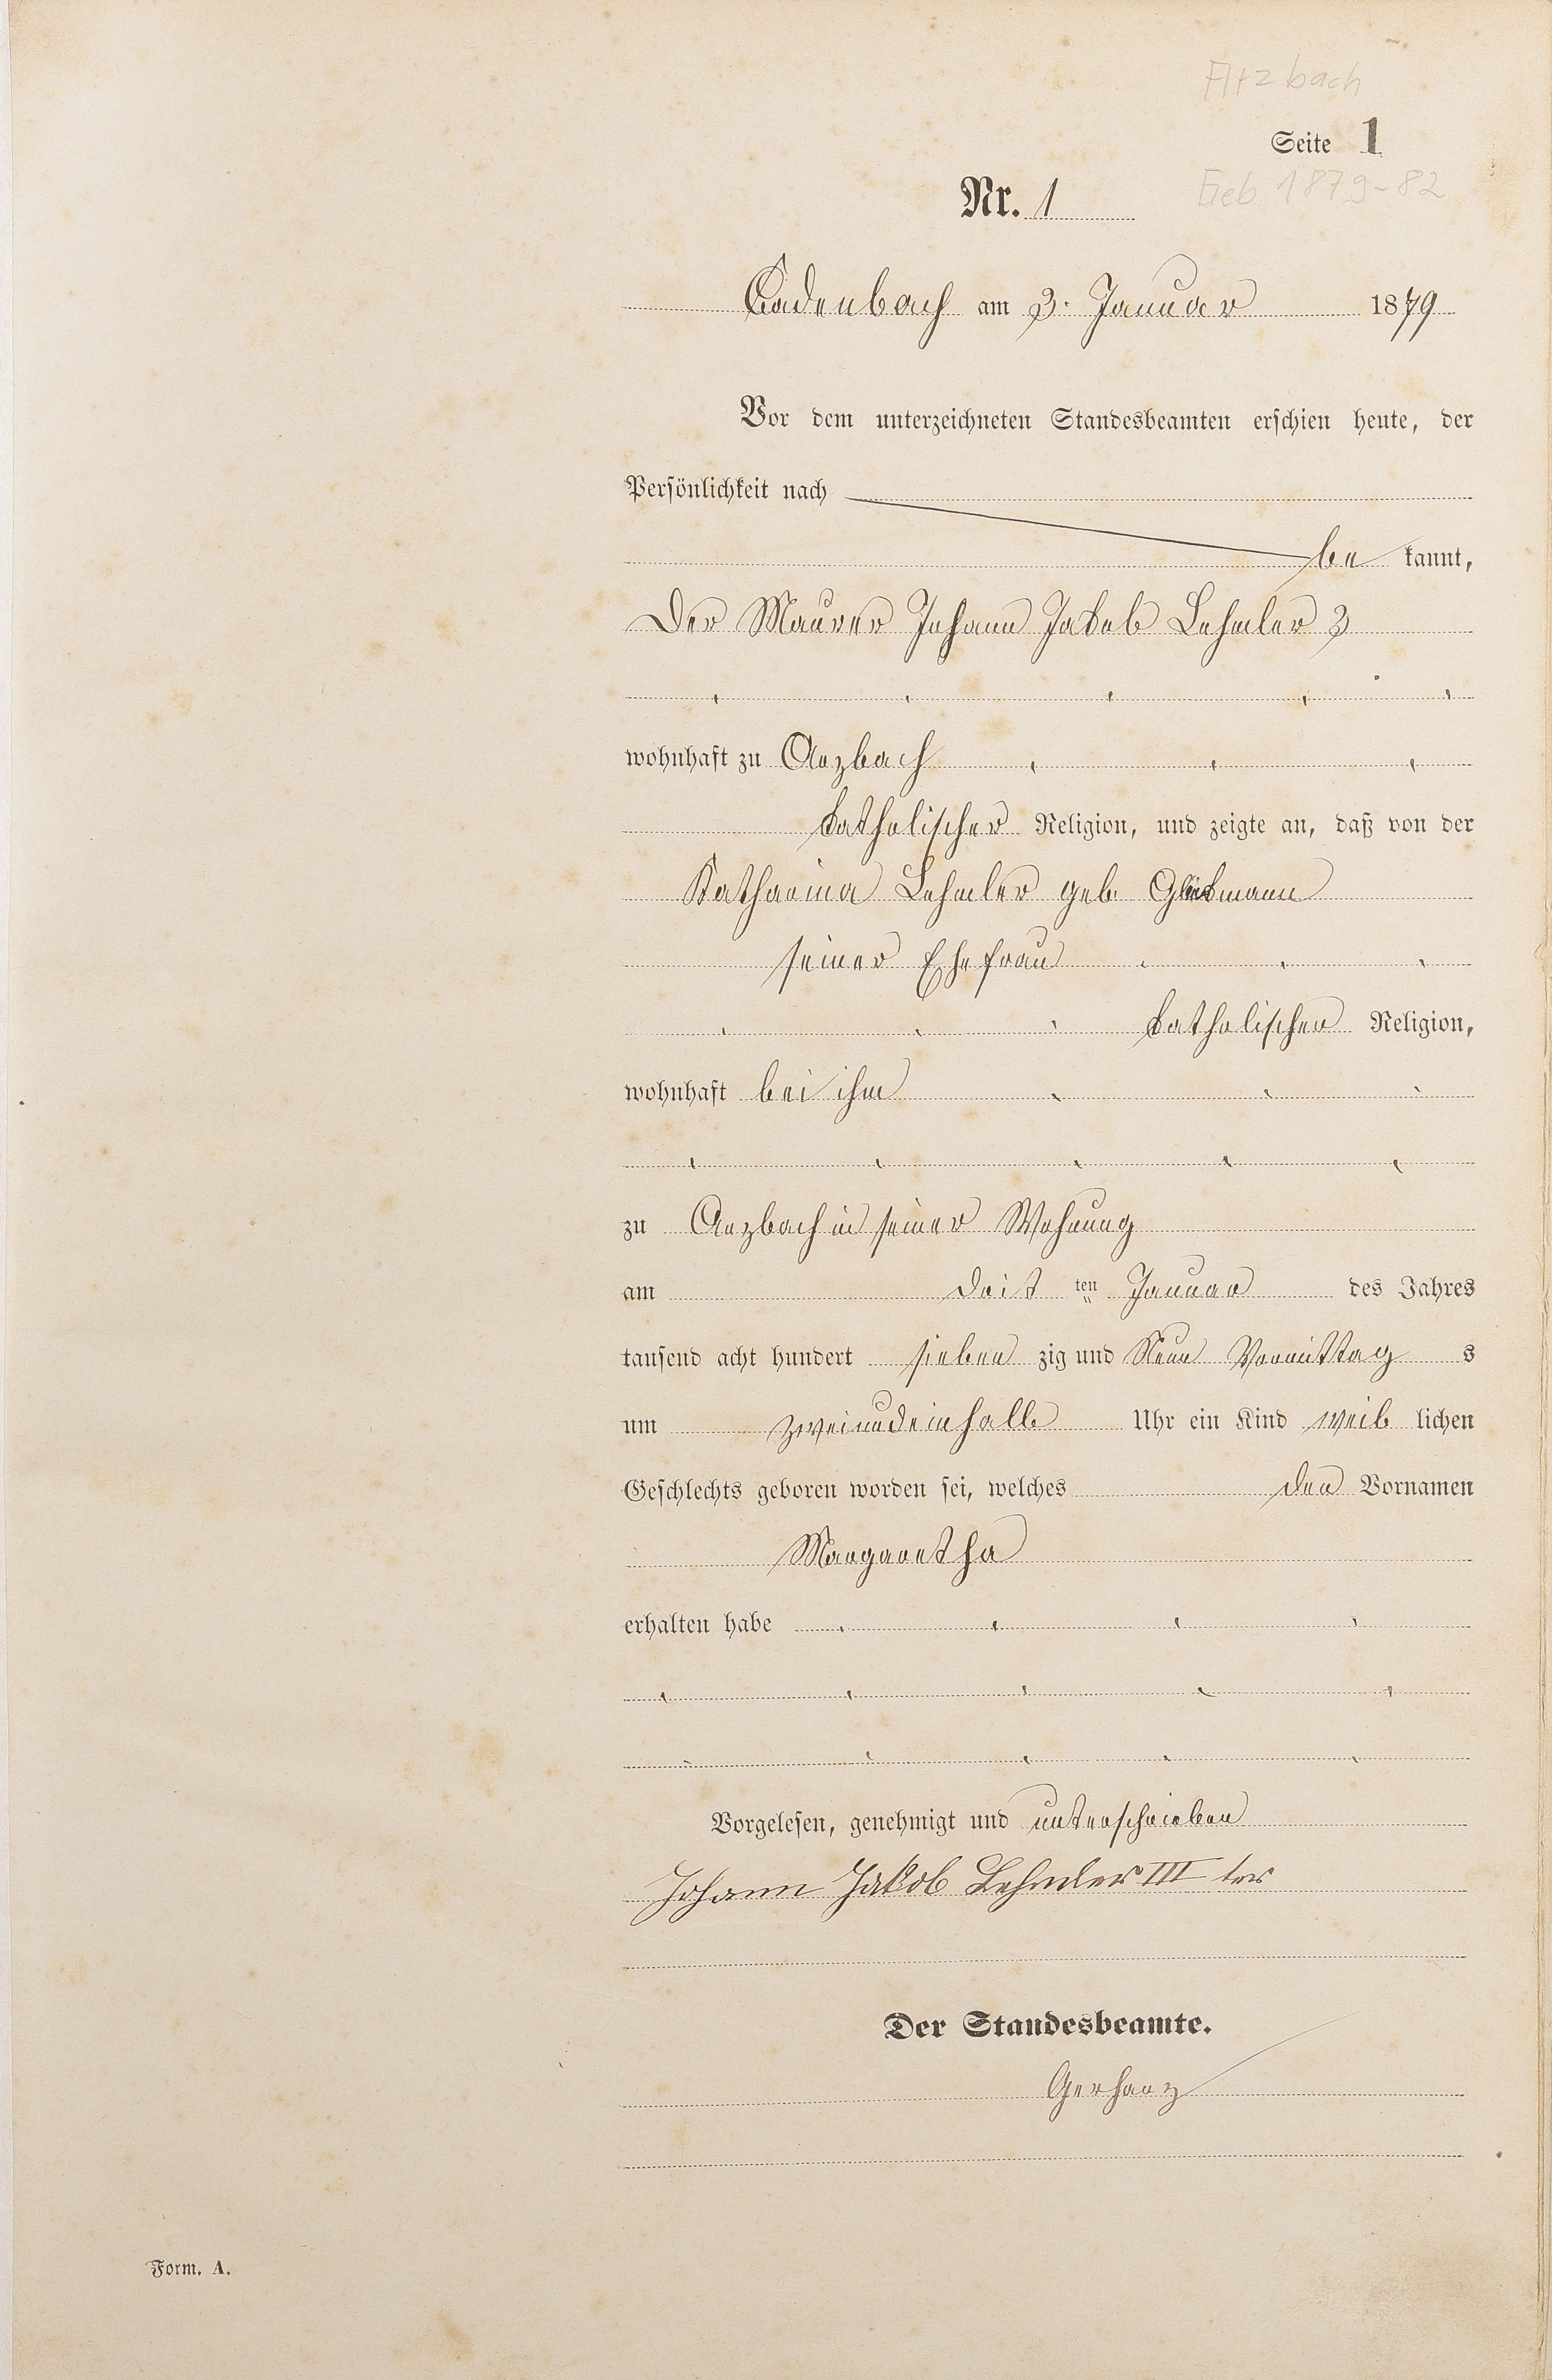 Arzbach
Seite 1
Nr. 1
Geb. 1879-82
Cadenbach am 3. Januar 1879
Vor dem unterzeichneten Standesbeamten erschien heute, der
Persönlichkeit nach
be kannt,
Der Maurer Johann Jakob Lehmler 3
wohnhaft zu Arzbach
katholischer Religion, und zeigte an, daß von der
Katharina Lehmler geb.
seiner Ehefrau
katholischer Religion,
wohnhaft bei ihm
zu Arzbach in seiner Wohnung
am Drit ten Januar des Jahres
tausend acht hundert sieben zig und Neun Vormittag s
um zweiundeinhalb Uhr ein Kind weib lichen
Geschlechts geboren worden sei, welches den Vornamen
Margaretha
erhalten habe
Vorgelesen, genehmigt und unterschrieben
Johann Jakob Lehmler III ter
Der Standesbeamte.
Gerharz
Form. A.